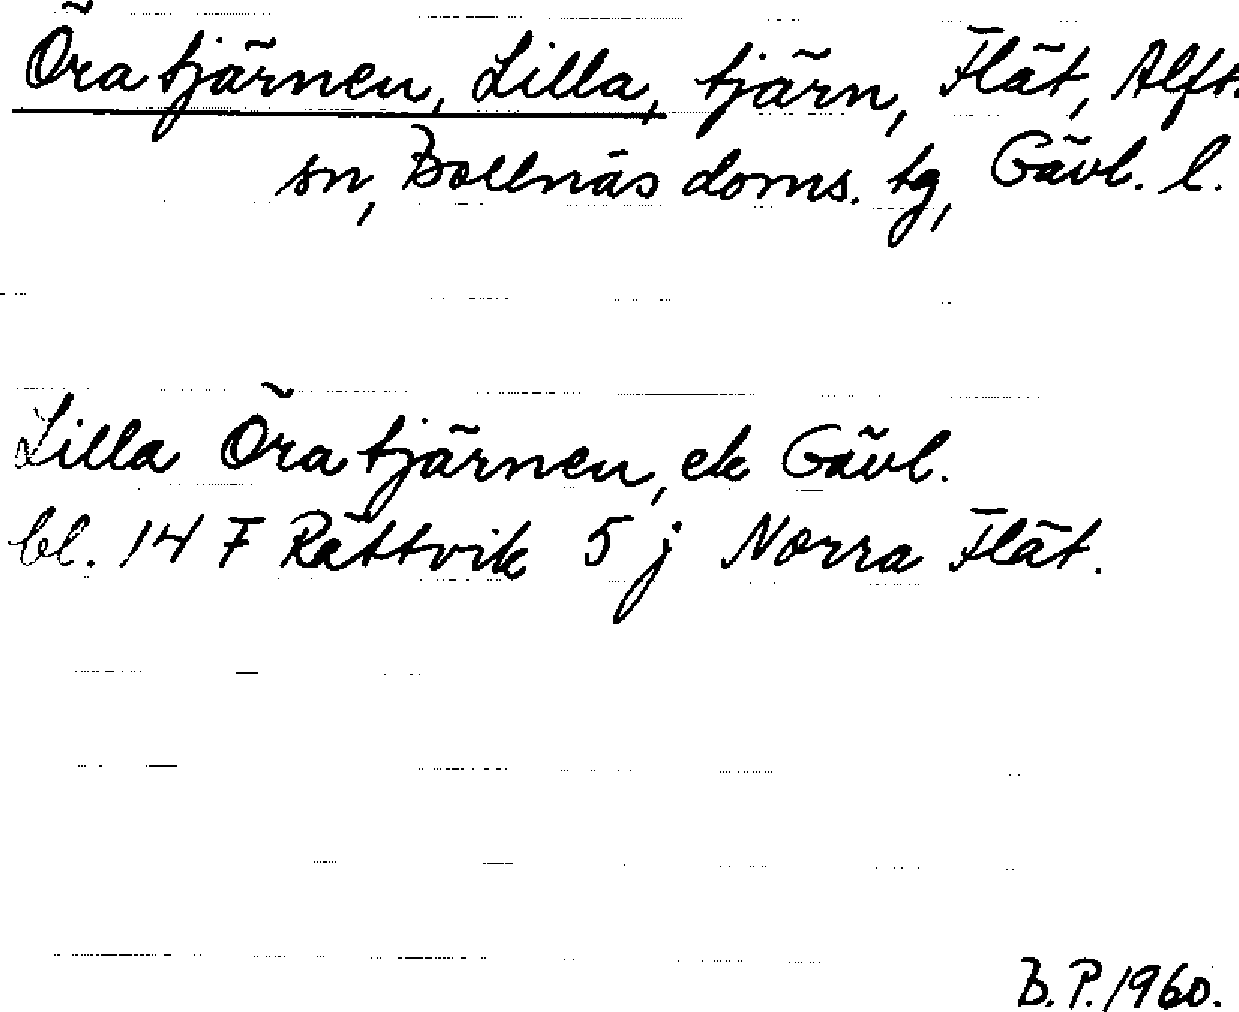 Öratjärnen, Lilla, tjärn, Flät, Alft.
sn, Bollnäs doms. tg, Gävl. l.
Lilla Öratjärnen, ek Gävl.
bl. 14 F Rättvik 5 j Norra Flät.
B. P. 1960.